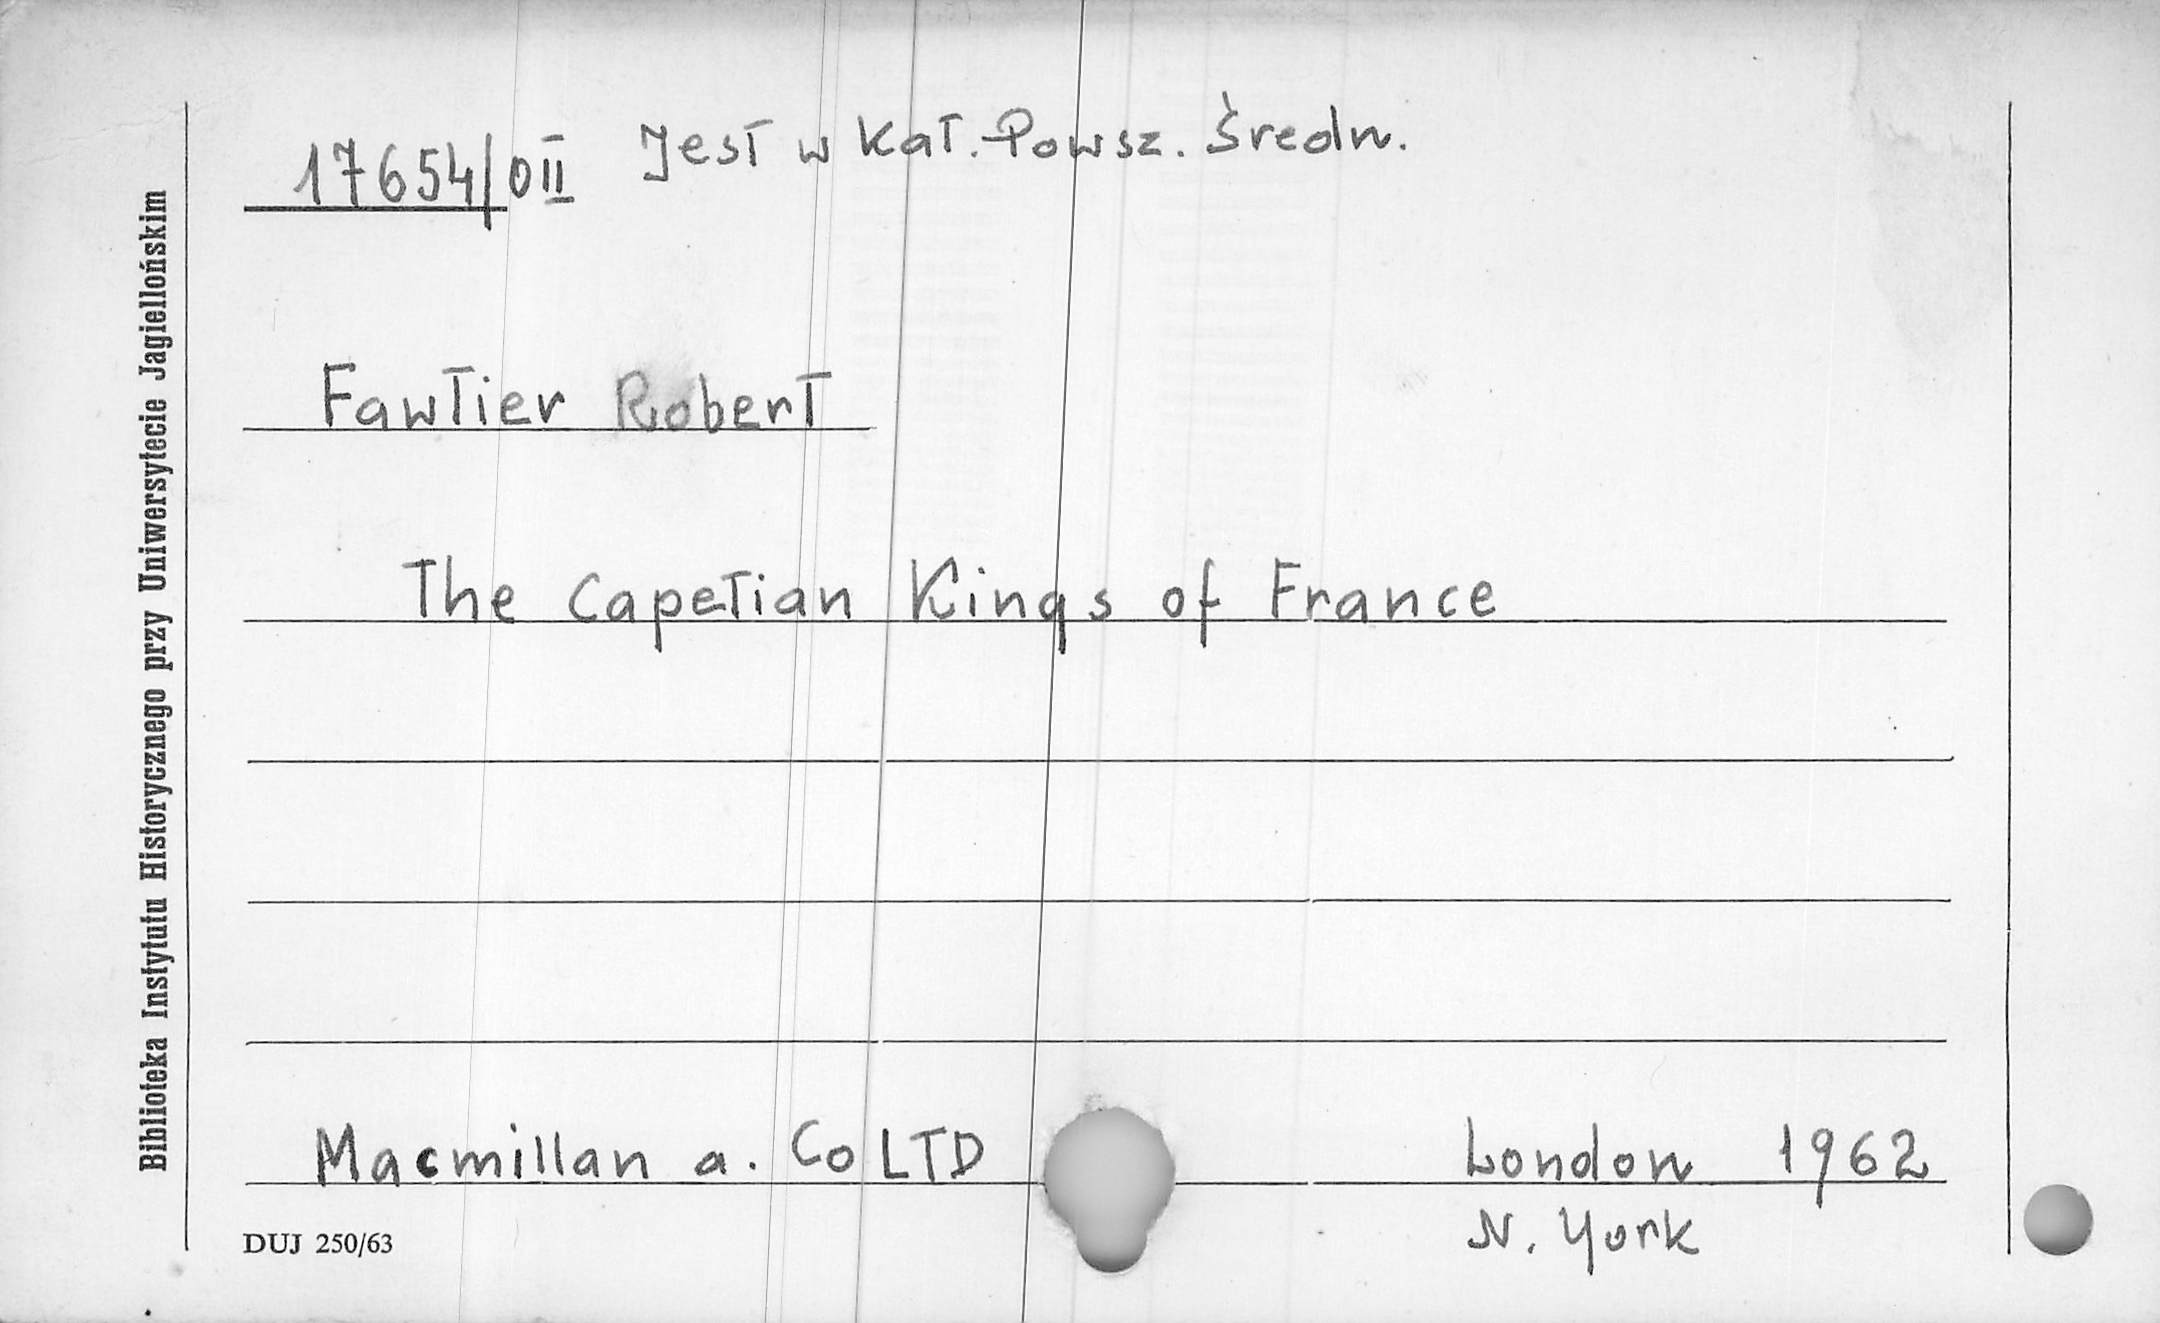 17654/0II Jest w Kat. Powsz. Średn.
Fawtier Robert
The Capetian Kings of France
Macmillan a. Co LTD London 1962
N. York
DUJ 250/63
Biblioteka Instytutu Historycznego przy Uniwersytecie Jagiellońskim